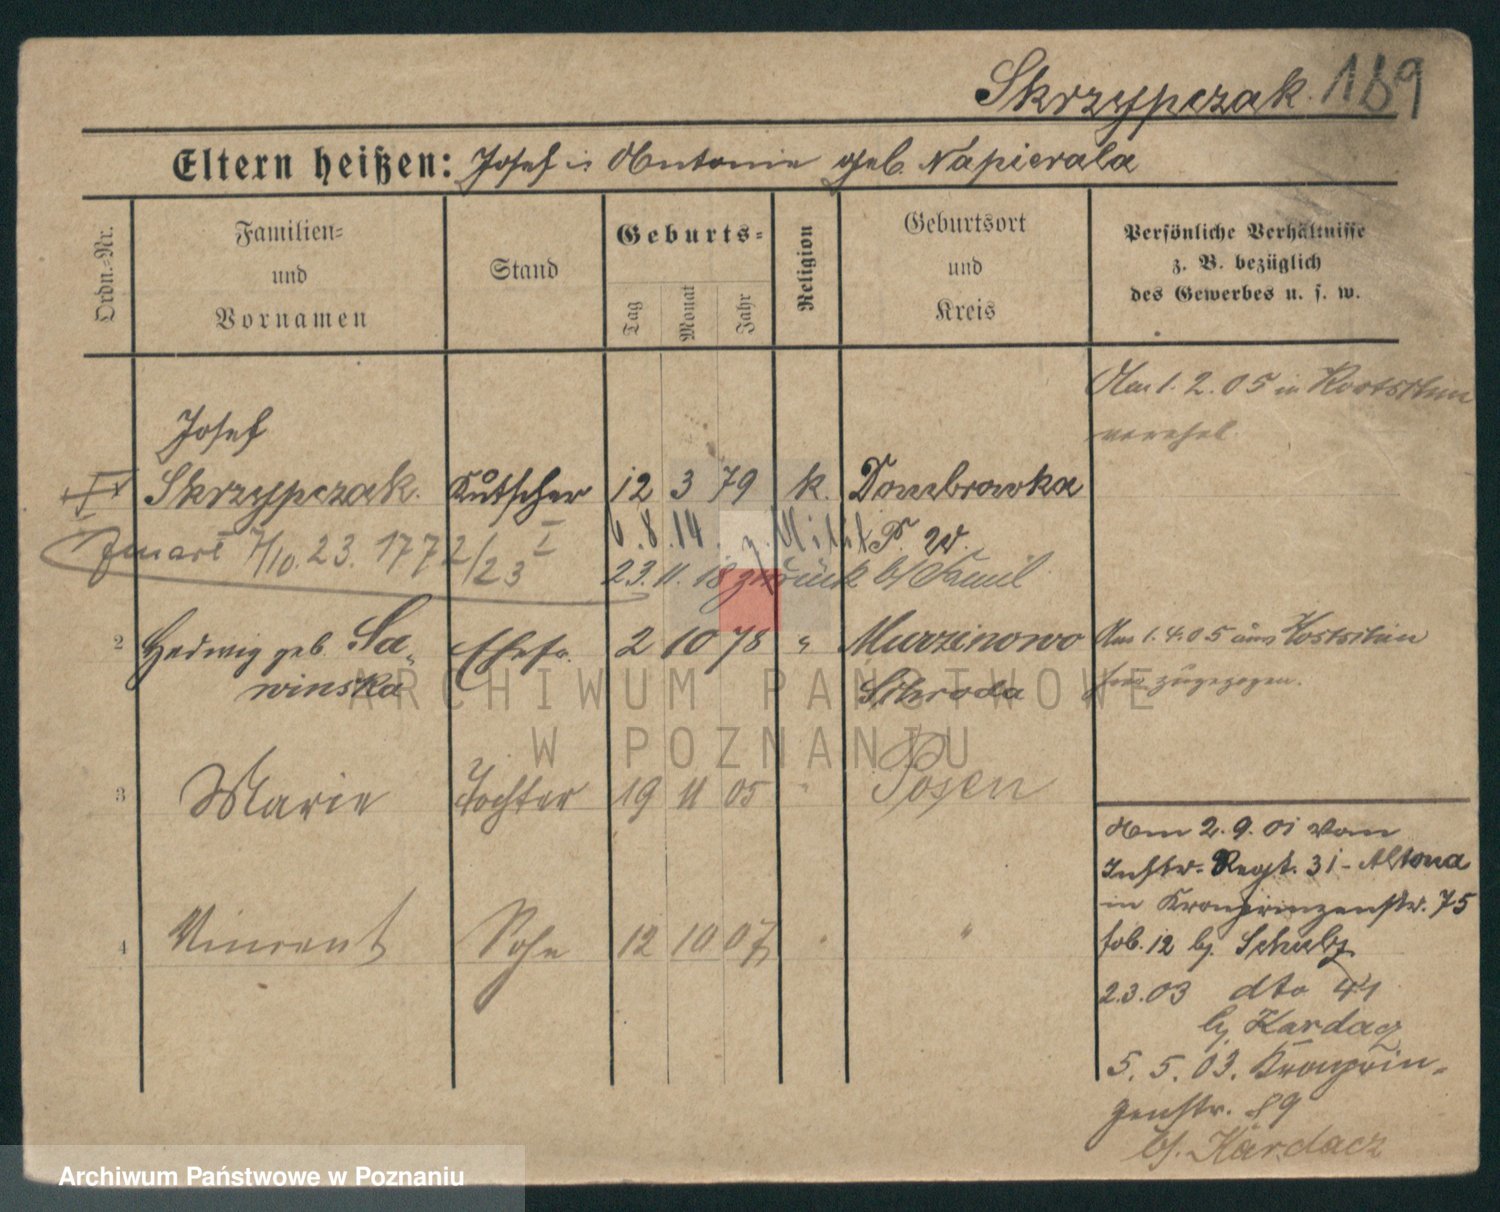 Skrzypczak. 189
Eltern heißen: Josef u. Antonie geb. Napierala
Ordn.-Nr.
Familien-
und
Vornamen
Stand
Geburts-
Tag
Monat
Jahr
Religion
Geburtsort
und
Kreis
Persönliche Verhältnisse
z. B. bezüglich
des Gewerbes u. s. w.
Am 1. 2. 05 in
verehel.
Josef
Skrzypczak. Kutscher 12 3 79 k. Dombrowka
6. 8. 14. z. Milit P. W.
7/10. 23. 1772/23 I
23. 11. 18 zurück b/
2 Hedwig geb. Sa- Ehefr. 2 10 78 " Murzinowo
winska Schroda
Am 1. 4. 05 aus
hier zugezogen.
3 Marie Tochter 19 11 05 " Posen
4 Vincent Sohn 12 10 07 " "
Am 2. 9. 01 vom
Inftr. Regt. 31 - Altona
in Kronprinzenstr. 75
feb. 12 bj. Schulz
2. 3. 03 dto 41
bj. Kardacz
5. 5. 03. Kronprin-
zenstr. 89
bj. Kardacz
ARCHIWUM PAŃSTWOWE
W POZNANIU
Archiwum Państwowe w Poznaniu